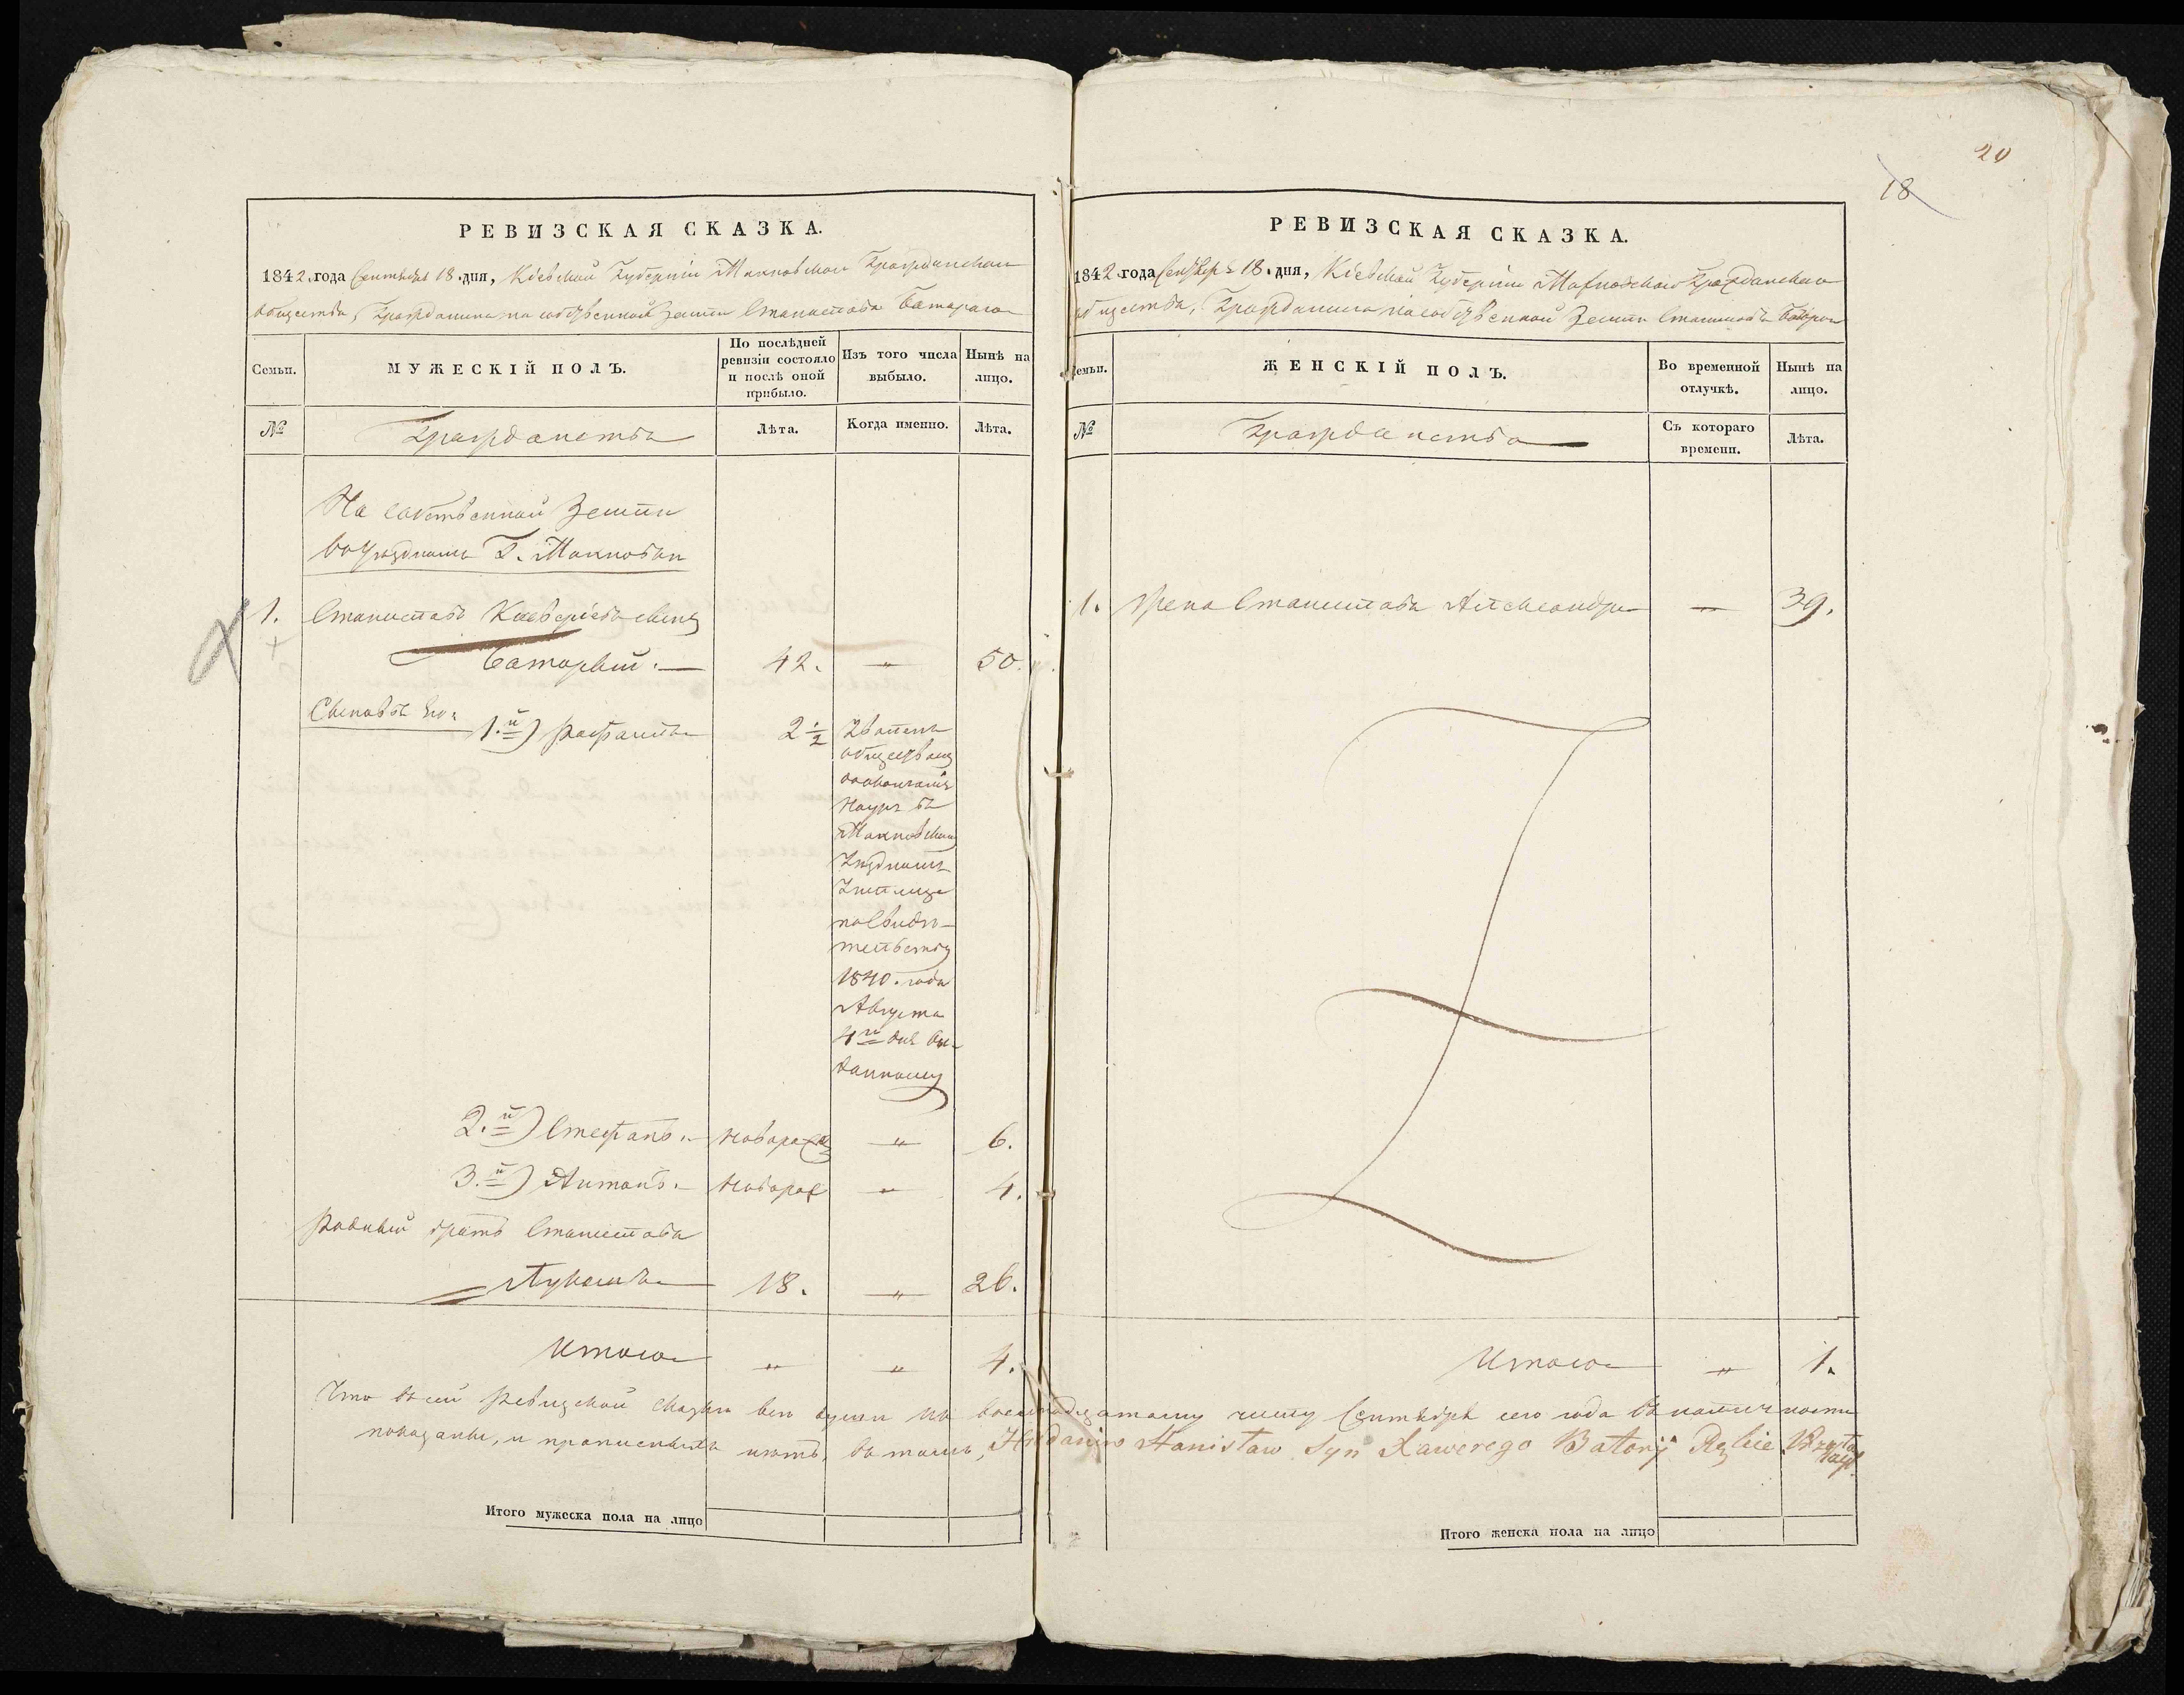 20
18
РЕВИЗСКАЯ СКАЗКА.
1842 года Сентября 18. дня, Кіевской Губерніи Махновскаго Гражданскаго
общества, Гражданина на собственной Земли Станислава Батораго
Семьи.
МУЖЕСКІЙ ПОЛЪ.
По послѣдней
ревизіи состояло
и послѣ оной
прибыло.
Изъ того числа
выбыло.
Нынѣ на
лицо.
№
Гражданства
Лѣта.
Когда именно.
Лѣта.
На собственной Земли
въ Уѣздномъ Г. Махновки
1. Станиславъ Ксаверіевъ сынъ
Баторый. 42. — " — 50.
Сыновья Его:
1.й) Рафаилъ 2 1/2
Уволенъ
обществомъ
по окончаніи
Наукъ въ
Махновскомъ
Уѣздномъ
Училище
по Свидѣ-
тельству
1840. года
Августа
4го дня вы-
данному
2.й) Стефанъ. новорож — " — 6.
3.й) Антонъ. новорож — " — 4.
Родный братъ Станислава
Лукашъ 18. — " — 26.
Итого " " 4.
Что въ сей Ревизской сказки всѣ души по восемнадцатому числу Сентября сего года въ наличности
показаны, и прописныхъ нѣтъ, въ томъ,
Итого мужеска пола на лицо
РЕВИЗСКАЯ СКАЗКА.
1842 года Сентября 18. дня, Кіевской Губерніи Махновскаго Гражданскаго
общества, Гражданина на собственной Земли Станислава Баторого
Семьи.
ЖЕНСКІЙ ПОЛЪ.
Во временной
отлучкѣ.
Нынѣ на
лицо.
№
Гражданства
Съ котораго
времени.
Лѣта.
1. Жена Станислава Александра — 39.
Итого " 1.
Stanisław Syn Xawerego Batory Ręką
Итого женска пола на лицо